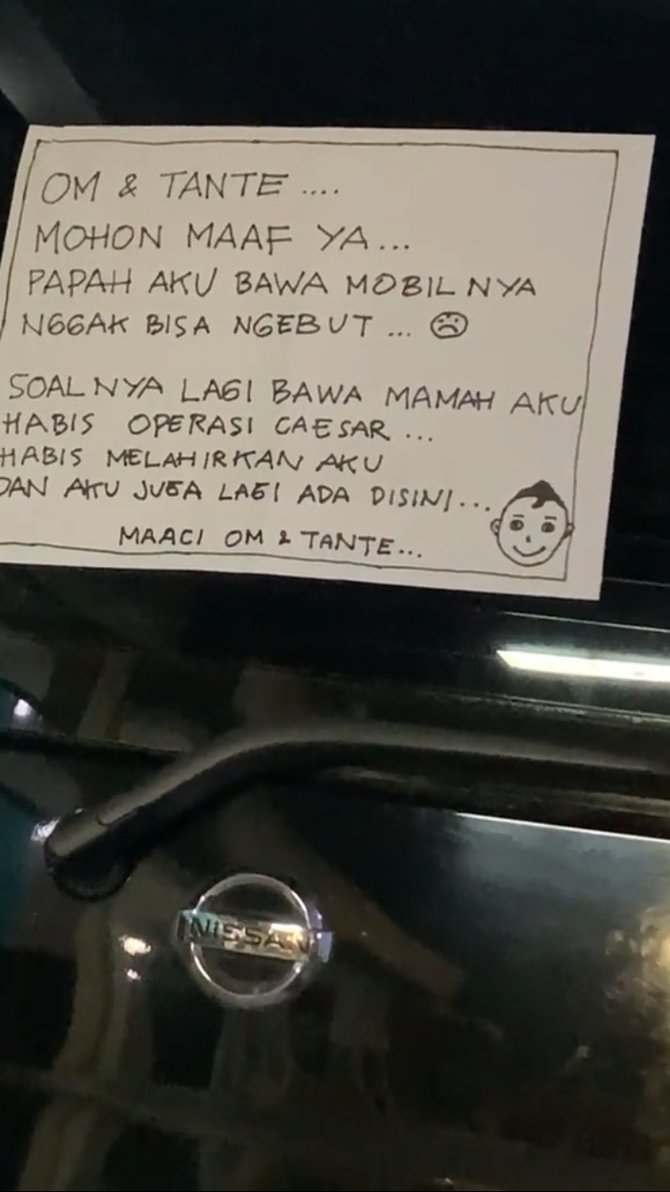 OM & TANTE ....
MOHON MAAF YA...
PAPAH AKU BAWA MOBILNYA
NGGAK BISA NGEBUT ... ☹
SOALNYA LAGI BAWA MAMAH AKU
HABIS OPERASI CAESAR ...
HABIS MELAHIRKAN AKU
DAN AKU JUGA LAGI ADA DISINI...
MAACI OM & TANTE...
NISSAN